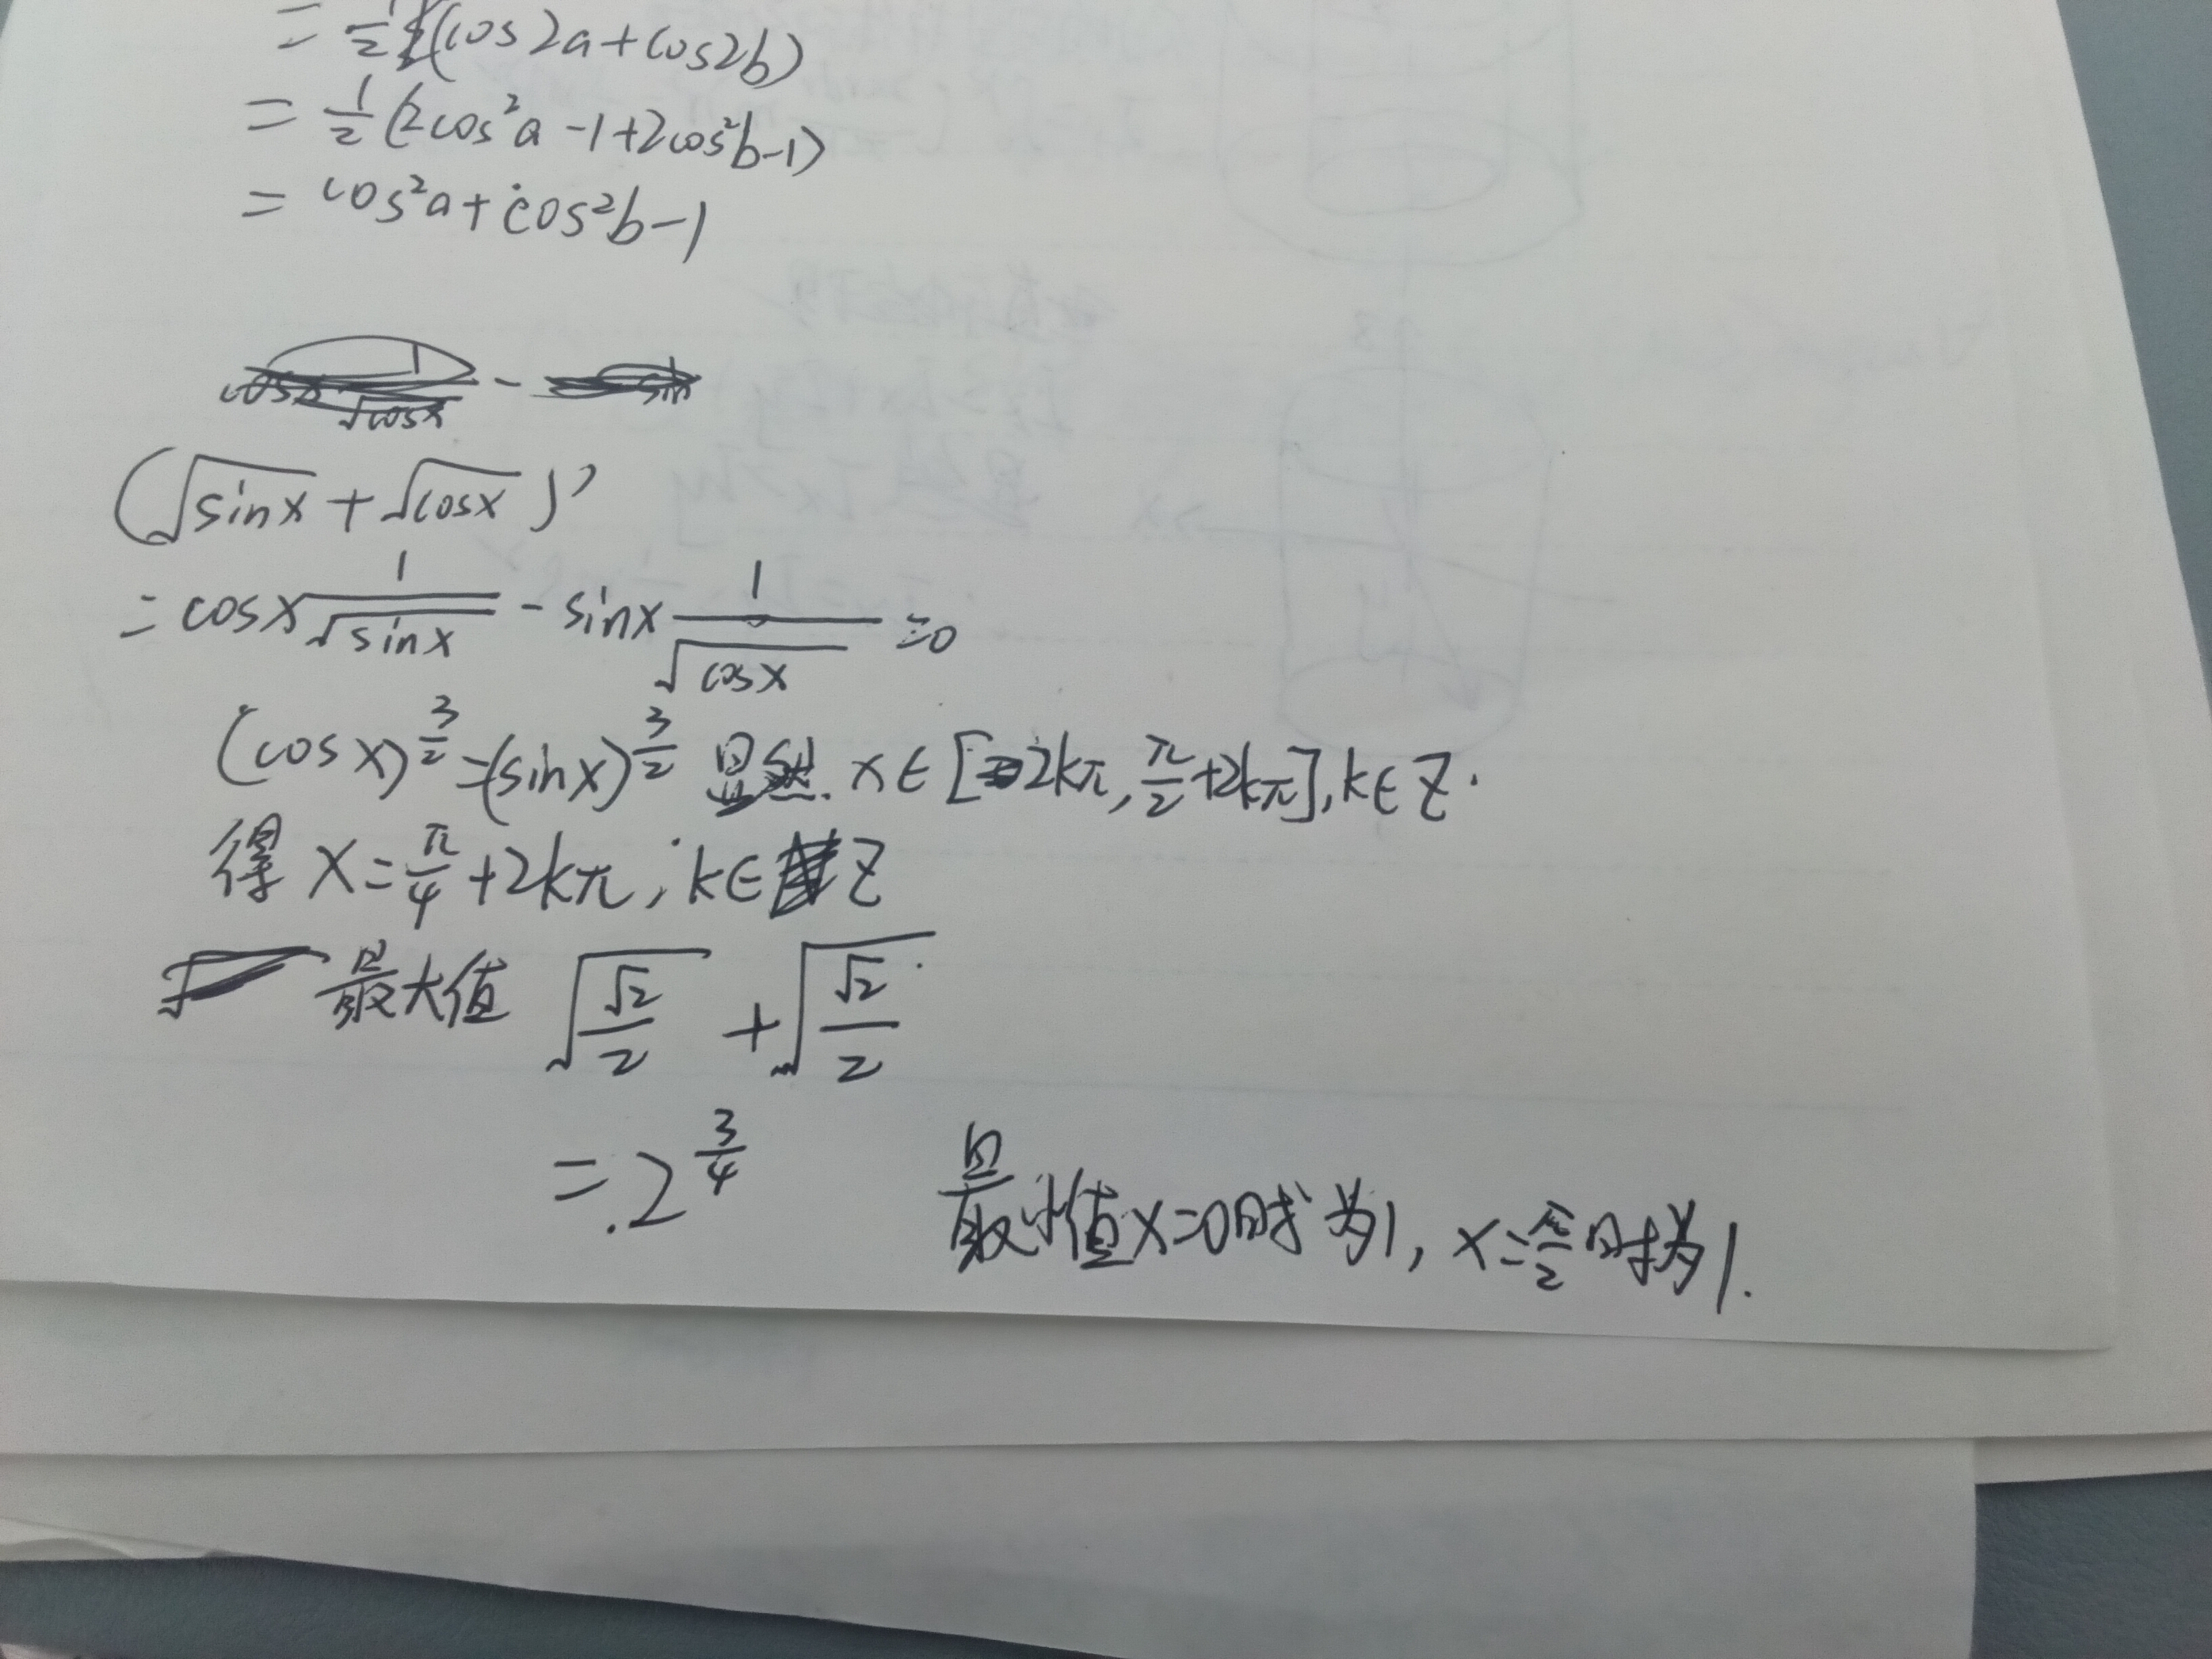 = 1/2 (cos2a + cos2b)
= 1/2 (2cos²a - 1 + 2cos²b - 1)
= cos²a + cos²b - 1
(√sinx + √cosx)'
= cosx 1/√sinx - sinx 1/√cosx = 0
(cosx)^(3/2) = (sinx)^(3/2) 显然. x∈[2kπ, π/2+2kπ], k∈Z.
得 x = π/4 + 2kπ, k∈Z
最大值 √(√2/2) + √(√2/2)
= 2^(3/4)
最小值x=0时为1, x=π/2时为1.